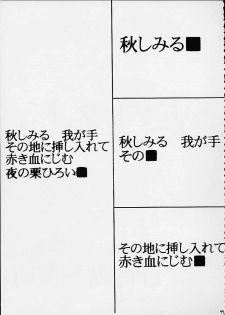 秋しみる■
秋しみる　我が手
その■
その地に挿し入れて
赤き血にじむ■
秋しみる　我が手
その地に挿し入れて
赤き血にじむ
夜の栗ひろい■